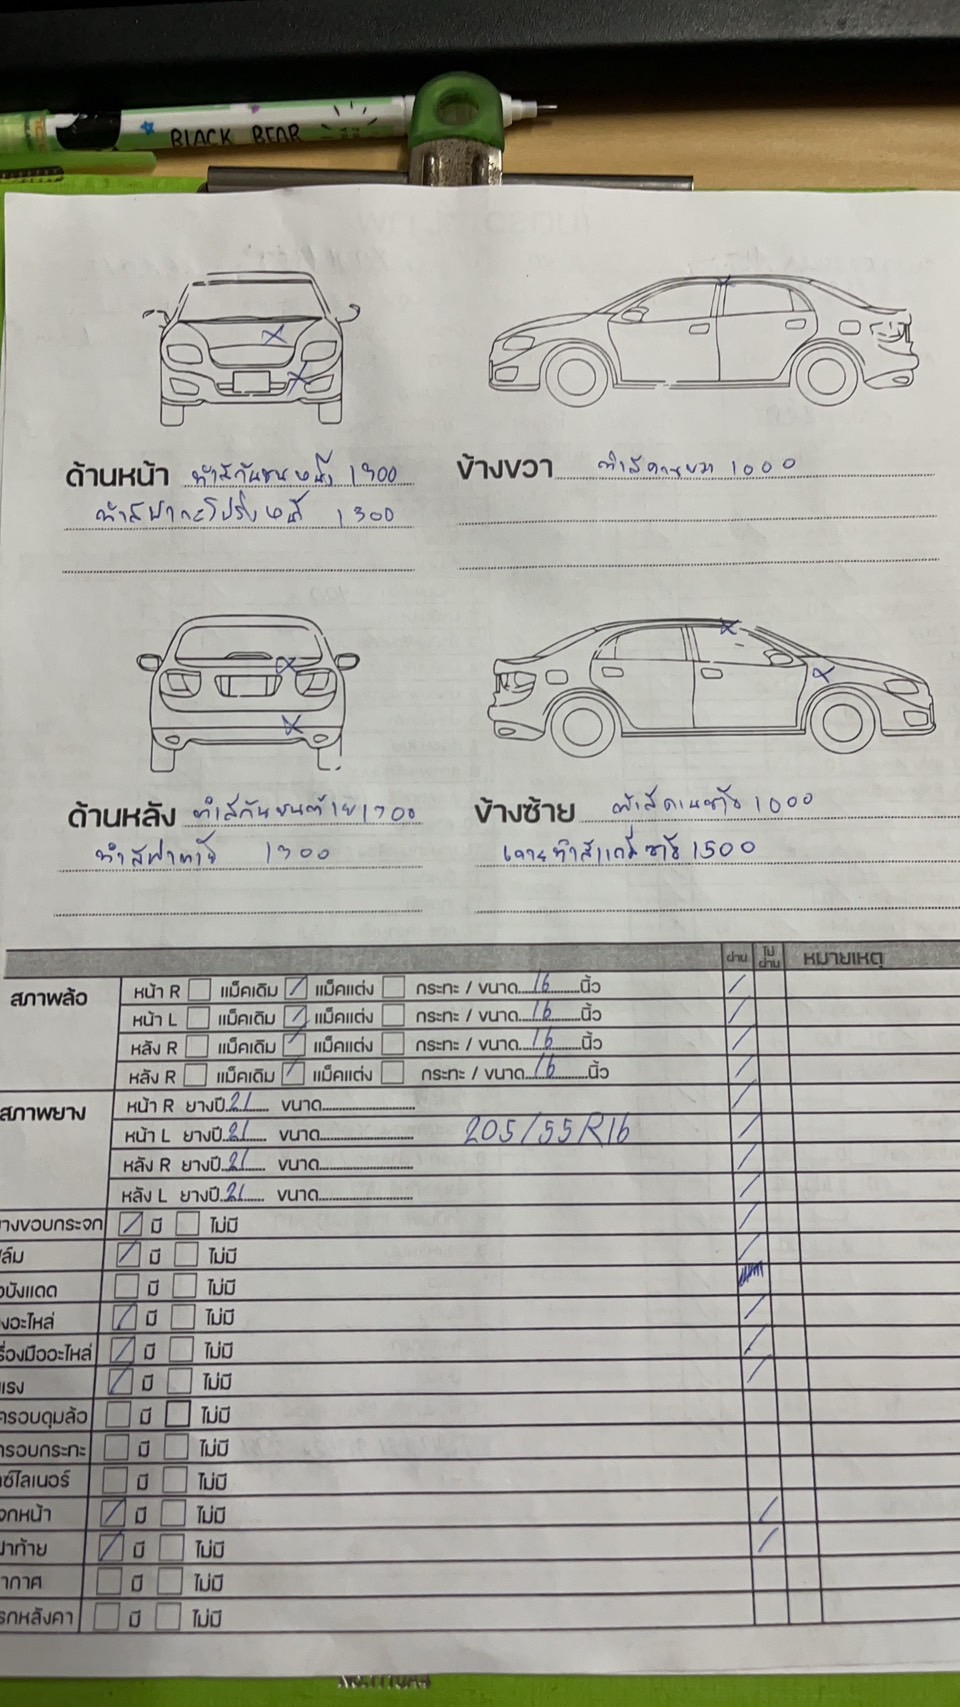 BLACK BEAR
ด้านหน้า ทำสีกันชนหน้า 1300
ทำสีฝากระโปรงหน้า 1300
ข้างขวา ทำสี 1000
ด้านหลัง ทำสีกันชนท้าย 1300
ทำสีฝาท้าย 1300
ข้างซ้าย ทำสี 1000
ทำสีแก้มซ้าย 1500
ผ่าน ไม่ผ่าน หมายเหตุ
สภาพล้อ หน้า R แม็คเดิม / แม็คแต่ง กระทะ / ขนาด 16 นิ้ว /
หน้า L แม็คเดิม / แม็คแต่ง กระทะ / ขนาด 16 นิ้ว /
หลัง R แม็คเดิม / แม็คแต่ง กระทะ / ขนาด 16 นิ้ว /
หลัง R แม็คเดิม / แม็คแต่ง กระทะ / ขนาด 16 นิ้ว /
สภาพยาง หน้า R ยางปี 21 ขนาด /
หน้า L ยางปี 21 ขนาด 205/55R16 /
หลัง R ยางปี 21 ขนาด /
หลัง L ยางปี 21 ขนาด /
างขอบกระจก / มี ไม่มี /
ล์ม / มี ไม่มี /
งบังแดด มี ไม่มี
งอะไหล่ / มี ไม่มี /
รื่องมืออะไหล่ / มี ไม่มี /
แรง / มี ไม่มี /
ครอบดุมล้อ มี ไม่มี
ครอบกระทะ มี ไม่มี
ซ์ไลเนอร์ มี ไม่มี
จกหน้า / มี ไม่มี /
ฝาท้าย / มี ไม่มี /
ากาศ มี ไม่มี
รกหลังคา มี ไม่มี